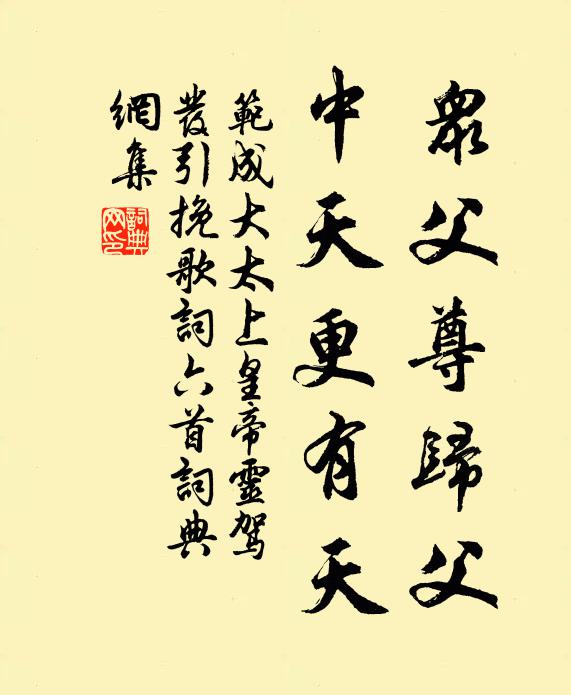 眾父尊歸父
中天更有天
範成大太上皇帝靈駕
發引挽歌詞六首詞典
網集
詞典
网印